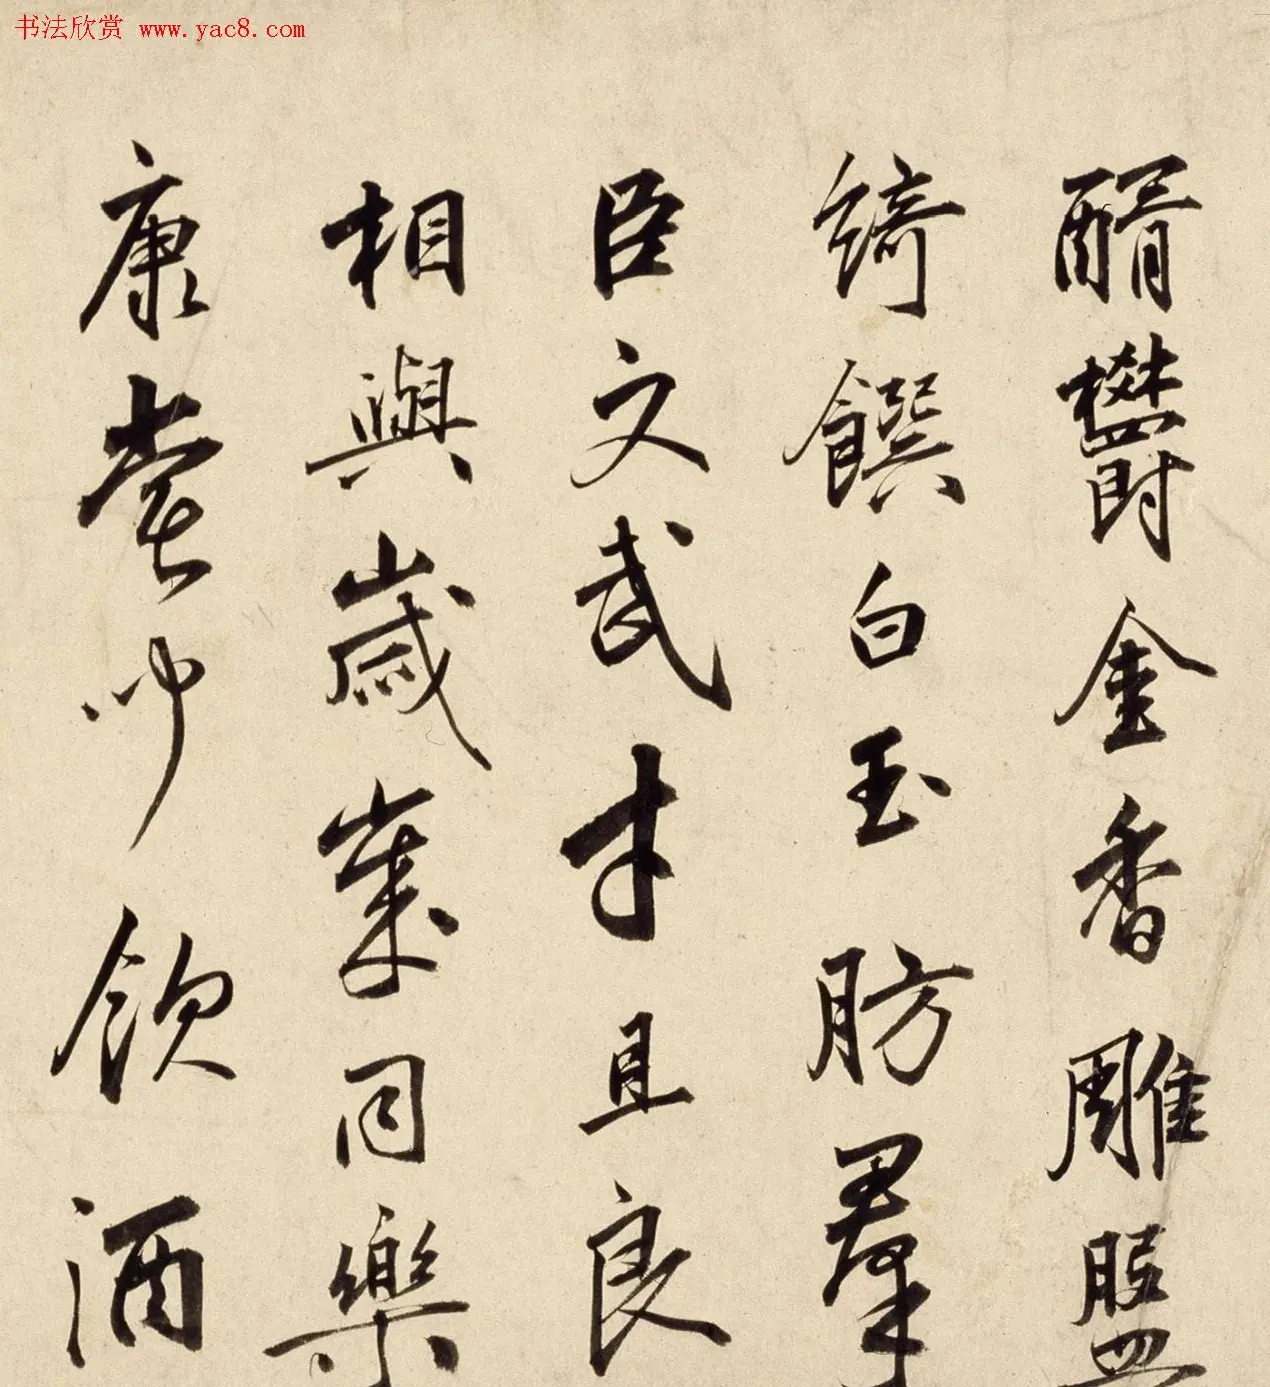 书法欣赏 www.yac8.com
醑欝金香雕盤
綺饌白玉肪羣
臣文武才且良
相與歲歲同樂
康坐中飲酒